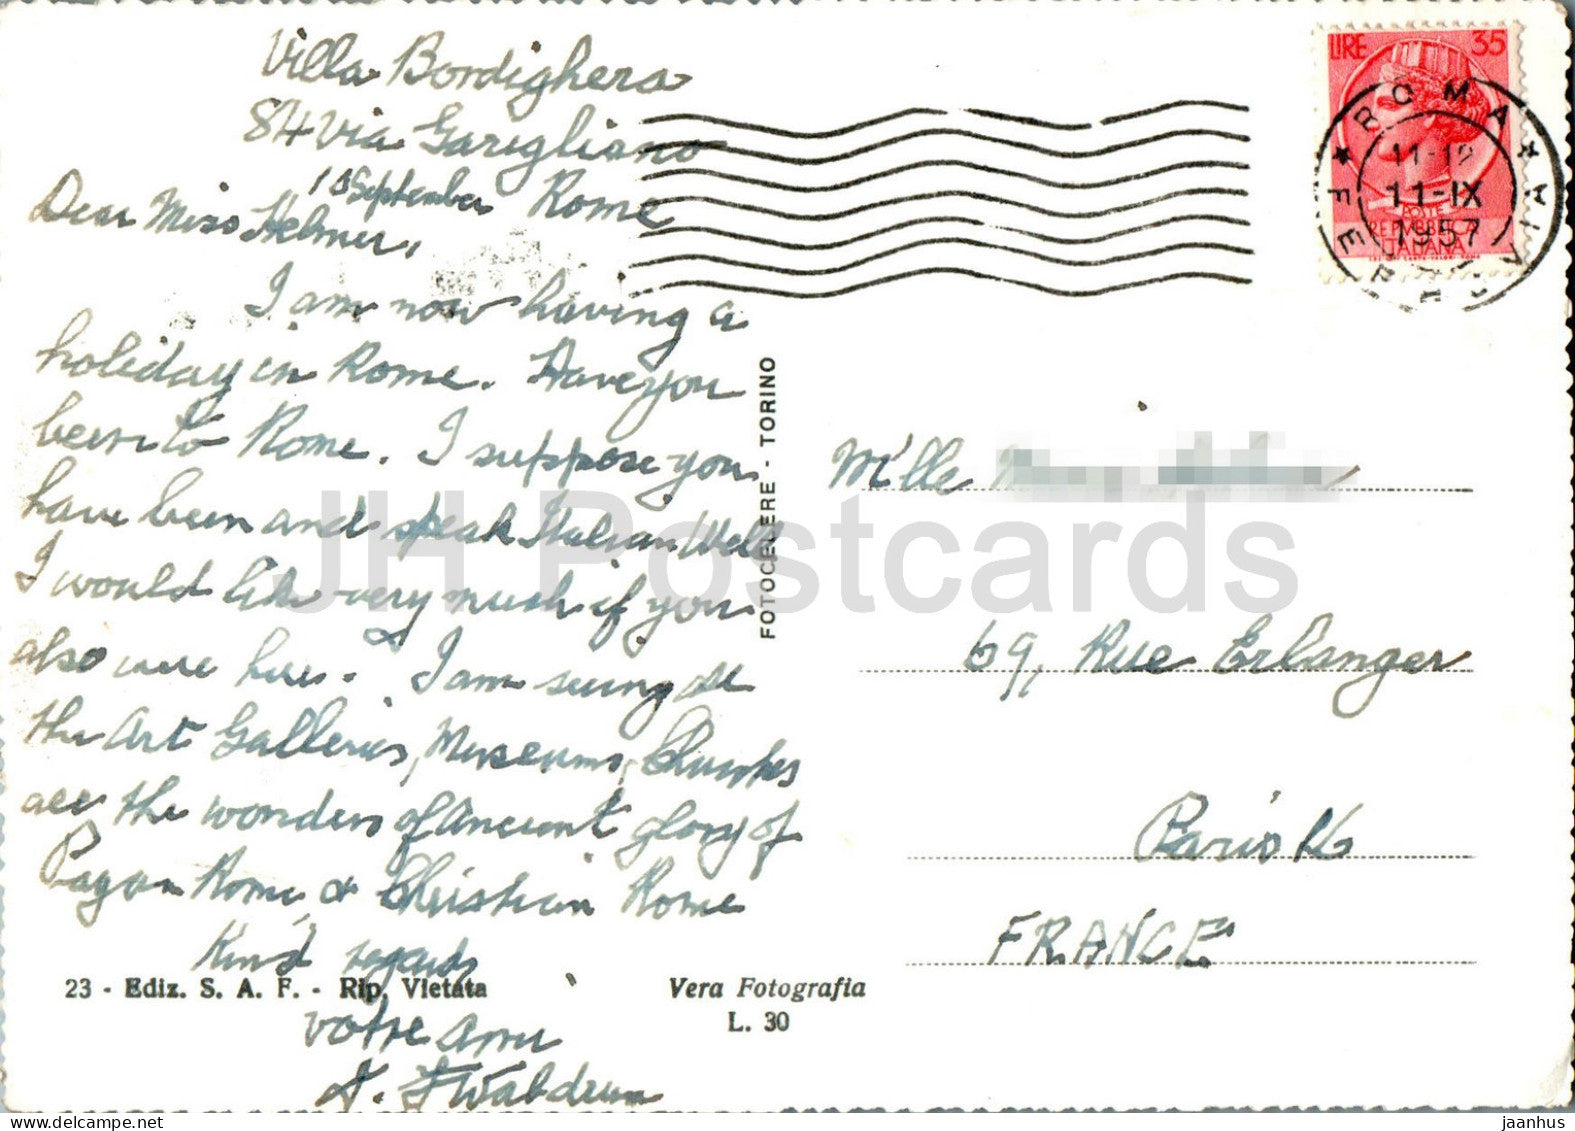 Villa Bordighera
84 Via Garigliano
10 September Rome
Dear Miss Helmer,
I am now having a
holiday in Rome. Have you
been to Rome. I suppose you
have been and speak Italian Well
I would like very much if you
also were here. I am seeing all
the Art Galleries, Museums, Churches
all the wonders of Ancient glory of
Pagan Rome & Christian Rome
Kind regards
23 - Ediz. S. A. F. - Rip. Vietata
votre ami
Vera Fotografia
L. 30
FOTOCELERE - TORINO
LIRE 35
POSTE
REPVBBLICA
ITALIANA
ROMA FERROVIA
11-IX
1957
M'lle
69, Rue Erlanger
Paris 16
FRANCE
JH Postcards
jaanhus
delcampe.net